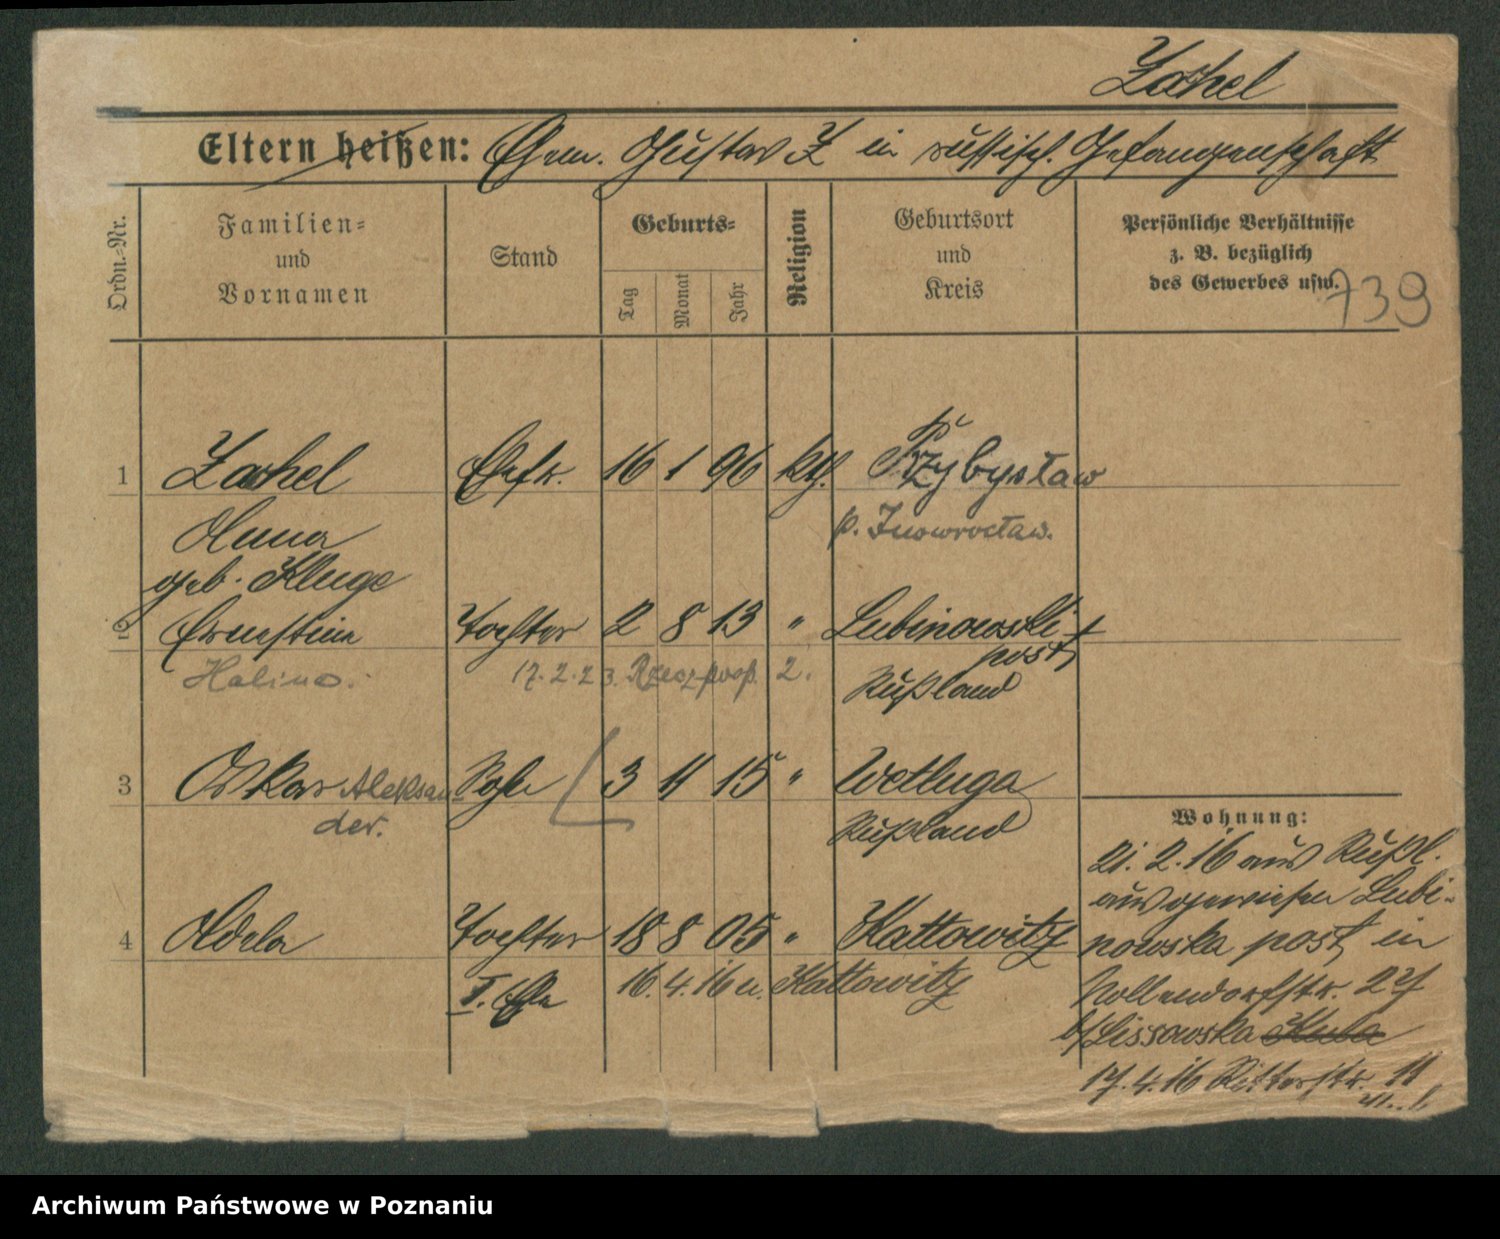 Zachel
Eltern heißen: Ehem. Gustav Z in russisch. Gefangenschaft
Ordn.-Nr.
Familien-
und
Vornamen
Stand
Geburts-
Tag
Monat
Jahr
Religion
Geburtsort
und
Kreis
Persönliche Verhältnisse
z. B. bezüglich
des Gewerbes usw.
739
1 Zachel Ehefr. 16 1 96 kth. Przybysław
p. Inowrocław.
Anna
geb. Kluge
2 Ernestine Tochter 2 8 13 " Lubinowski
post
Halina. 17.2.23. 2.
Rußland
3 Oskar Aleksan- Sohn 3 11 15 " Wetluga
der. Rußland
Wohnung:
21. 2. 16 aus Rußl.
ausgewiesen Lubi-
nowska post in
4 Adela Tochter 18 8 05 " Kattowitz
I. Ehe 16. 4. 16 n. Kattowitz
Nollendorfstr. 27
b/ Lissowska
17. 4. 16 Ritterstr. 11
Archiwum Państwowe w Poznaniu